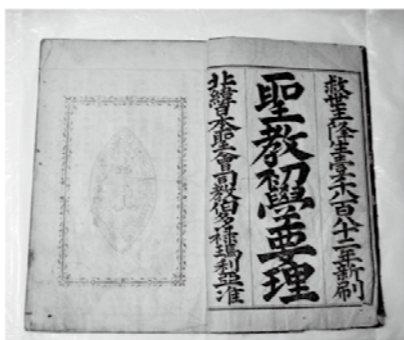 救世主降生壹千八百八十二年新刷
聖教初學要理
北緯日本聖會司教伯多禄瑪利亞准